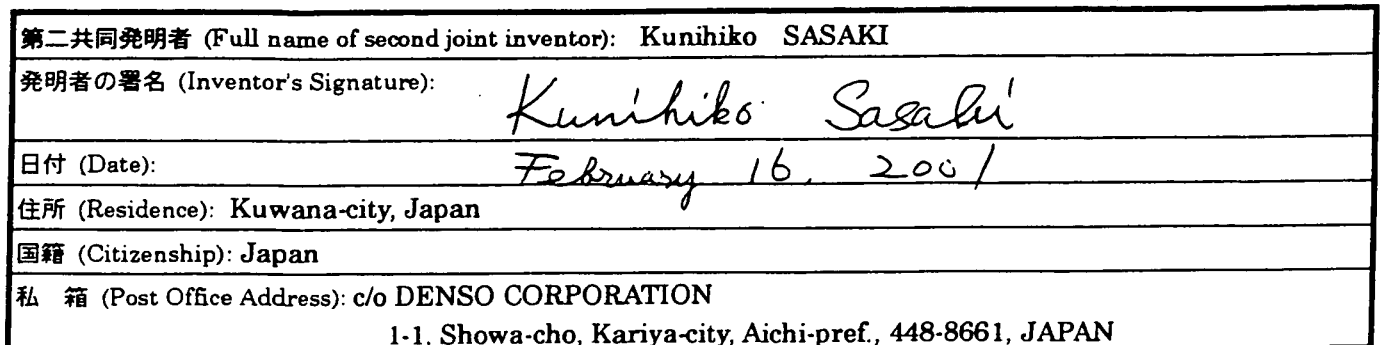 第二共同発明者 (Full name of second joint inventor): Kunihiko SASAKI
発明者の署名 (Inventor's Signature): Kunihiko Sasaki
日付 (Date): February 16, 2001
住所 (Residence): Kuwana-city, Japan
国籍 (Citizenship): Japan
私 箱 (Post Office Address): c/o DENSO CORPORATION
1-1, Showa-cho, Kariya-city, Aichi-pref., 448-8661, JAPAN